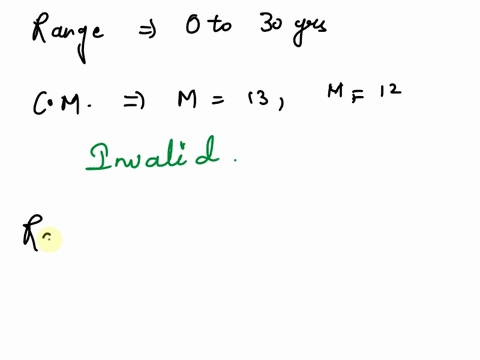 Range ⇒ 0 to 30 yrs
C.M. ⇒ M = 13, M = 12
Invalid.
R